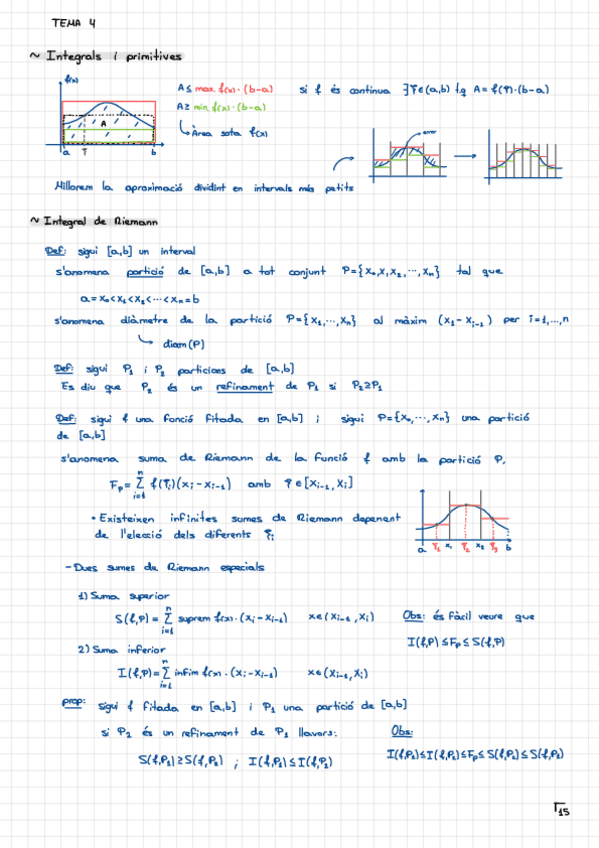 TEMA 4
~ Integrals i primitives
f(x)
A
a ξ b
A ≤ max f(x)·(b-a)
A ≥ min f(x)·(b-a)
Àrea sota f(x)
si f és contínua ∃ ξ∈(a,b) t.q A = f(ξ)·(b-a)
error
Millorem la aproximació dividint en intervals més petits
~ Integral de Riemann
Def: sigui [a,b] un interval
s'anomena partició de [a,b] a tot conjunt P={x₀,x₁,x₂,···,xₙ} tal que
a=x₀<x₁<x₂<···<xₙ=b
s'anomena diàmetre de la partició P={x₁,···,xₙ} al màxim (x₁-xᵢ₋₁) per i=1,...,n
diam(P)
Def: sigui P₁ i P₂ particions de [a,b]
Es diu que P₂ és un refinament de P₁ si P₂⊇P₁
Def: sigui f una funció fitada en [a,b] i sigui P={x₀,···,xₙ} una partició
de [a,b]
s'anomena suma de Riemann de la funció f amb la partició P,
Fₚ = Σᵢ₌₁ⁿ f(ξᵢ)(xᵢ-xᵢ₋₁) amb ξ∈[xᵢ₋₁,xᵢ]
• Existeixen infinites sumes de Riemann depenent
de l'elecció dels diferents ξᵢ
a ξ₁ x₁ ξ₂ x₂ ξ₃ b
- Dues sumes de Riemann especials
1) Suma superior
S(f,P) = Σᵢ₌₁ⁿ suprem f(x)·(xᵢ-xᵢ₋₁) x∈(xᵢ₋₁,xᵢ)
Obs: és fàcil veure que
I(f,P) ≤ Fₚ ≤ S(f,P)
2) Suma inferior
I(f,P) = Σᵢ₌₁ⁿ infim f(x)·(xᵢ-xᵢ₋₁) x∈(xᵢ₋₁,xᵢ)
prop: sigui f fitada en [a,b] i P₁ una partició de [a,b]
si P₂ és un refinament de P₁ llavors:
S(f,P₁) ≥ S(f,P₂) ; I(f,P₁) ≤ I(f,P₂)
Obs:
I(f,P₁) ≤ I(f,P₂) ≤ Fₚ ≤ S(f,P₂) ≤ S(f,P₁)
15